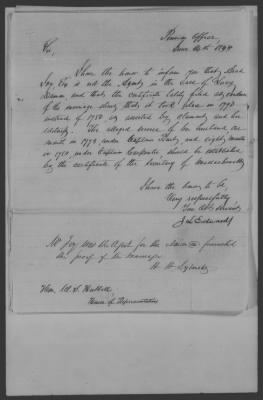 Pension Office
June 14th 1848
Sir,
I have the honor to inform you that
Esq. is not the Agent in the case of
and that the certificate lately filed as evidence
of the marriage shows that it took place in 1790
instead of 1780 as asserted by claimant and her
The alleged service of her husband one
month in 1778 under Captain and eight months
in 1780 under Captain Carpenter should be established
by the certificate of the Secretary of Massachusetts
I have the honor to be,
Very respectfully
Your Obt. Servant
J L Edwards
Mr Foy was the Agent for the who furnished
the proof of the marriage
H. H. Sylvester
Hon.
House of Representatives